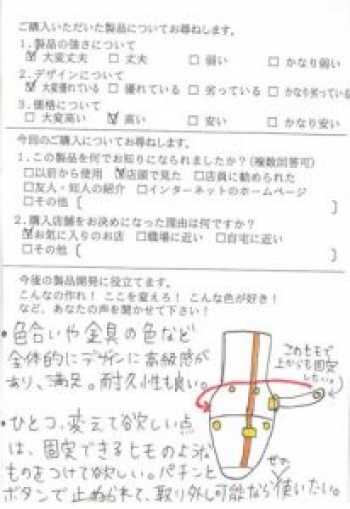 ご購入いただいた製品についてお尋ねします。
1.製品の強さについて
☑大変丈夫 □丈夫 □弱い □かなり弱い
2.デザインについて
☑大変優れている □優れている □劣っている □かなり劣っている
3.価格について
□大変高い ☑高い □安い □かなり安い
今回のご購入についてお尋ねします。
1.この製品を何でお知りになられましたか?(複数回答可)
□以前から使用 ☑店頭で見た □店員に勧められた
□友人・知人の紹介 □インターネットのホームページ
□その他〔 〕
2.購入店舗をお決めになった理由は何ですか?
☑お気に入りのお店 □職場に近い □自宅に近い
□その他〔 〕
今後の製品開発に役立てます。
こんなの作れ! ここを変えろ! こんな色が好き!
など、あなたの声を聞かせて下さい!
・色合いや金具の色など
全体的にデザインに高級感が
あり、満足。耐久性も良い。
このヒモで
上からも固定
したい。
・ひとつ、変えて欲しい点
は、固定できるヒモのような
ものをつけて欲しい。パチンと
ボタンで止められて、取り外し可能なら ぜひ 使いたい。